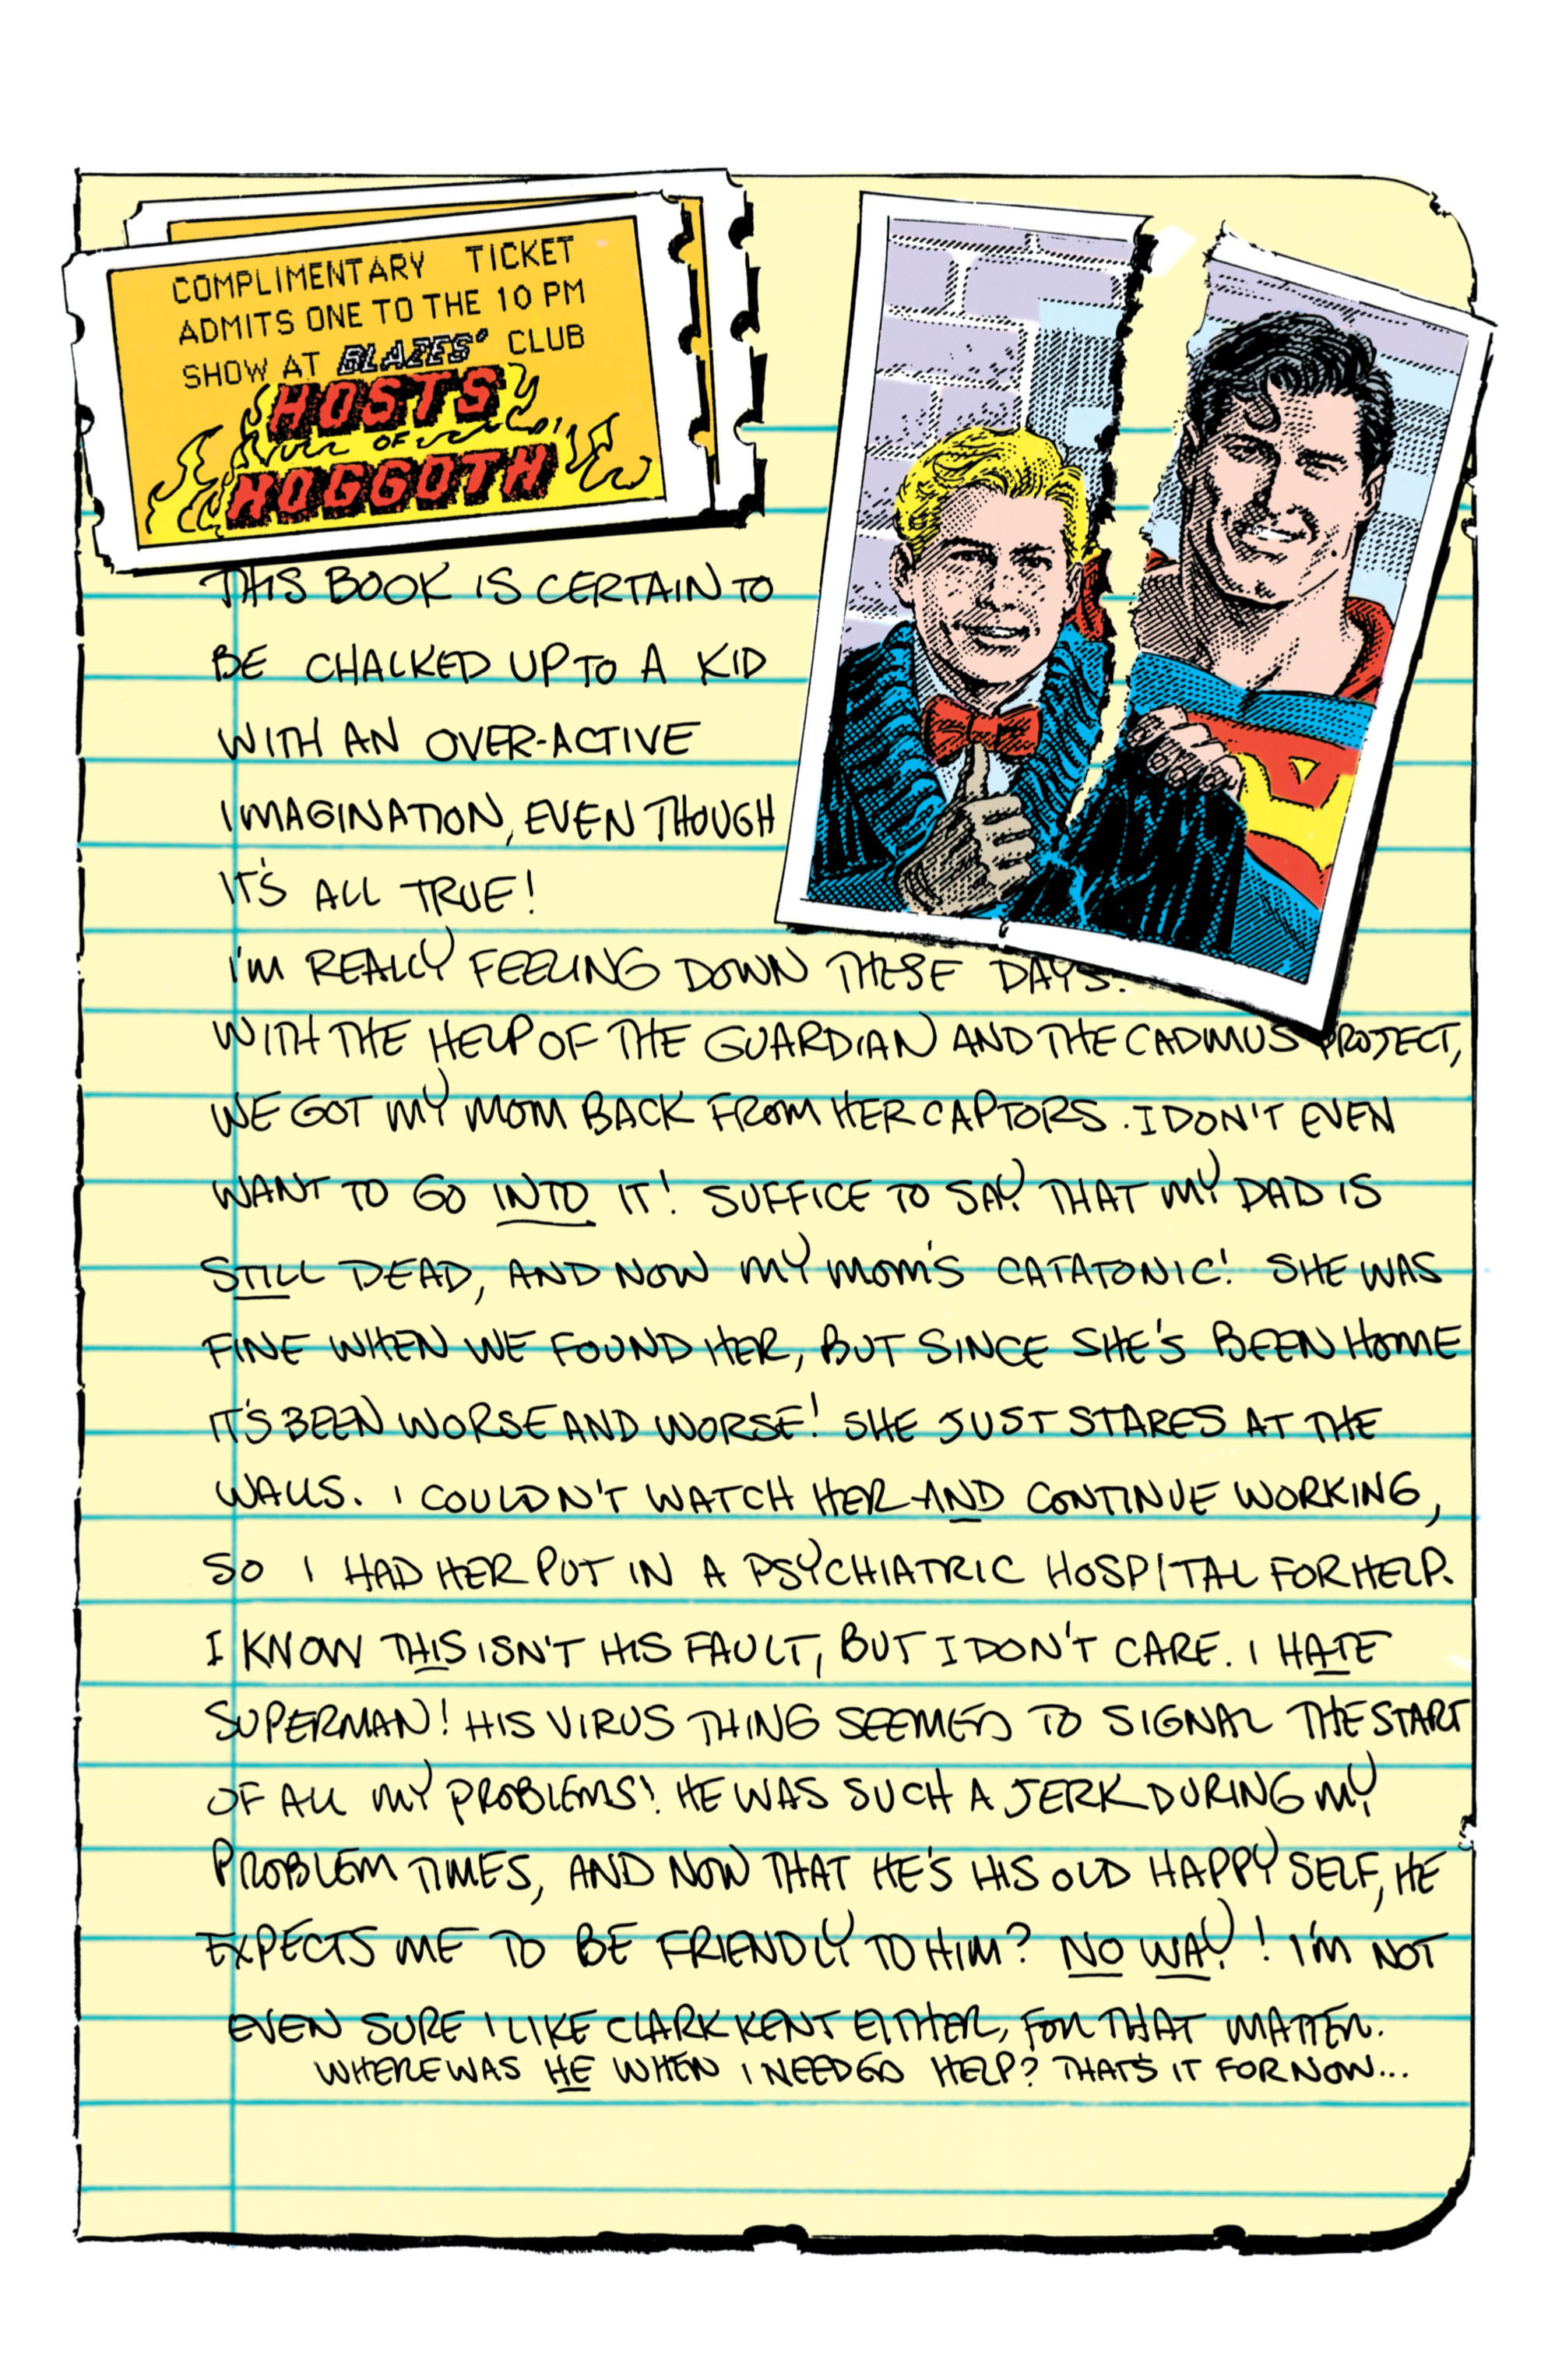 COMPLIMENTARY TICKET
ADMITS ONE TO THE 10 PM
SHOW AT BLAZES' CLUB
HOSTS
OF
HOGGOTH
THIS BOOK IS CERTAIN TO
BE CHALKED UP TO A KID
WITH AN OVER-ACTIVE
IMAGINATION, EVEN THOUGH
IT'S ALL TRUE!
I'M REALLY FEELING DOWN THESE DAYS.
WITH THE HELP OF THE GUARDIAN AND THE CADMUS PROJECT,
WE GOT MY MOM BACK FROM HER CAPTORS. I DON'T EVEN
WANT TO GO INTO IT! SUFFICE TO SAY THAT MY DAD IS
STILL DEAD, AND NOW MY MOM'S CATATONIC! SHE WAS
FINE WHEN WE FOUND HER, BUT SINCE SHE'S BEEN HOME
IT'S BEEN WORSE AND WORSE! SHE JUST STARES AT THE
WALLS. I COULDN'T WATCH HER AND CONTINUE WORKING,
SO I HAD HER PUT IN A PSYCHIATRIC HOSPITAL FOR HELP.
I KNOW THIS ISN'T HIS FAULT, BUT I DON'T CARE. I HATE
SUPERMAN! HIS VIRUS THING SEEMED TO SIGNAL THE START
OF ALL MY PROBLEMS! HE WAS SUCH A JERK DURING MY
PROBLEM TIMES, AND NOW THAT HE'S HIS OLD HAPPY SELF, HE
EXPECTS ME TO BE FRIENDLY TO HIM? NO WAY! I'M NOT
EVEN SURE I LIKE CLARK KENT EITHER, FOR THAT MATTER.
WHERE WAS HE WHEN I NEEDED HELP? THAT'S IT FOR NOW...